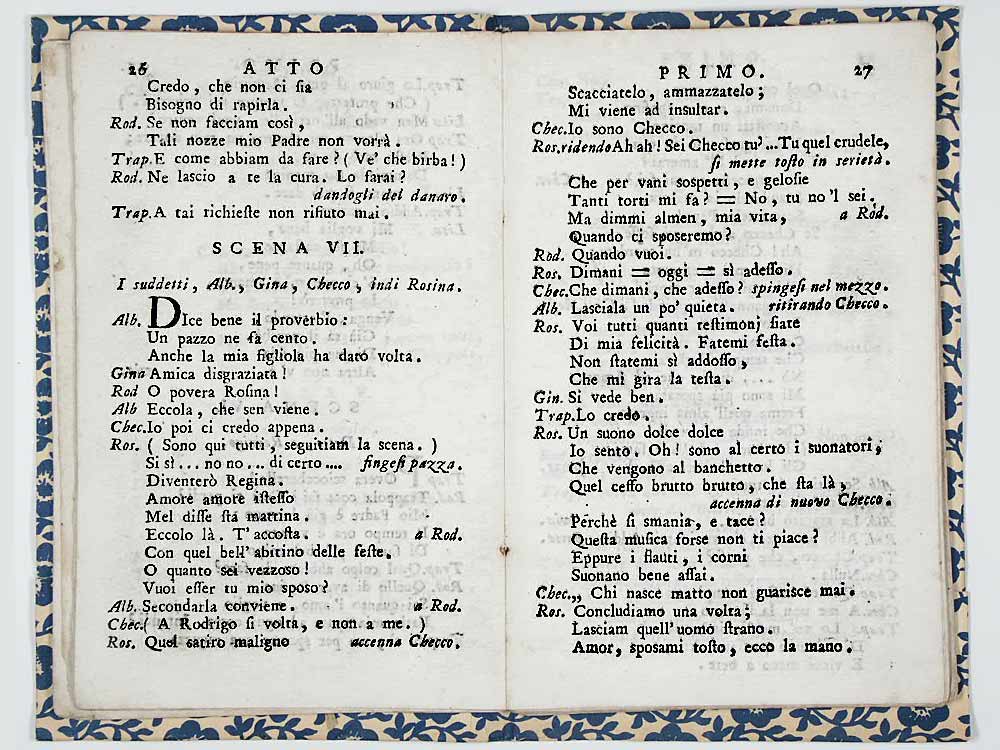 26 ATTO
Credo, che non ci sia
Bisogno di rapirla.
Rod. Se non facciam così,
Tali nozze mio Padre non vorrà.
Trap. E come abbiam da fare? (Ve' che birba!)
Rod. Ne lascio a te la cura. Lo farai?
dandogli del danaro.
Trap. A tai richieste non rifiuto mai.
SCENA VII.
I suddetti, Alb., Gina, Checco, indi Rosina.
Alb. DIce bene il proverbio:
Un pazzo ne fa cento.
Anche la mia figliola ha dato volta.
Gina Amica disgraziata!
Rod O povera Rosina!
Alb Eccola, che sen viene.
Chec. Io poi ci credo appena.
Ros. (Sono qui tutti, seguitiam la scena.)
Si sì... no no... di certo.... fingesi pazza.
Diventerò Regina.
Amore amore istesso
Mel disse sta mattina.
Eccolo là. T'accosta. a Rod.
Con quel bell'abitino delle feste.
O quanto sei vezzoso!
Vuoi esser tu mio sposo?
Alb. Secondarla conviene. a Rod.
Chec. (A Rodrigo si volta, e non a me.)
Ros. Quel satiro maligno accenna Checco.
PRIMO. 27
Scacciatelo, ammazzatelo;
Mi viene ad insultar.
Chec. Io sono Checco.
Ros. ridendo Ah ah! Sei Checco tu?... Tu quel crudele,
si mette tosto in serietà.
Che per vani sospetti, e gelosie
Tanti torti mi fa? = No, tu no'l sei.
Ma dimmi almen, mia vita, a Rod.
Quando ci sposeremo?
Rod. Quando vuoi.
Ros. Dimani = oggi = sì adesso.
Chec. Che dimani, che adesso? spingesi nel mezzo.
Alb. Lasciala un po' quieta. ritirando Checco.
Ros. Voi tutti quanti testimonj siate
Di mia felicità. Fatemi festa.
Non statemi sì addosso,
Che mi gira la testa.
Gin. Si vede ben.
Trap. Lo credo.
Ros. Un suono dolce dolce
Io sento. Oh! sono al certo i suonatori,
Che vengono al banchetto.
Quel ceffo brutto brutto, che sta là,
accenna di nuovo Checco.
Perchè si smania, e tace?
Questa musica forse non ti piace?
Eppure i flauti, i corni
Suonano bene assai.
Chec. „ Chi nasce matto non guarisce mai.
Ros. Concludiamo una volta;
Lasciam quell'uomo strano.
Amor, sposami tosto, ecco la mano.